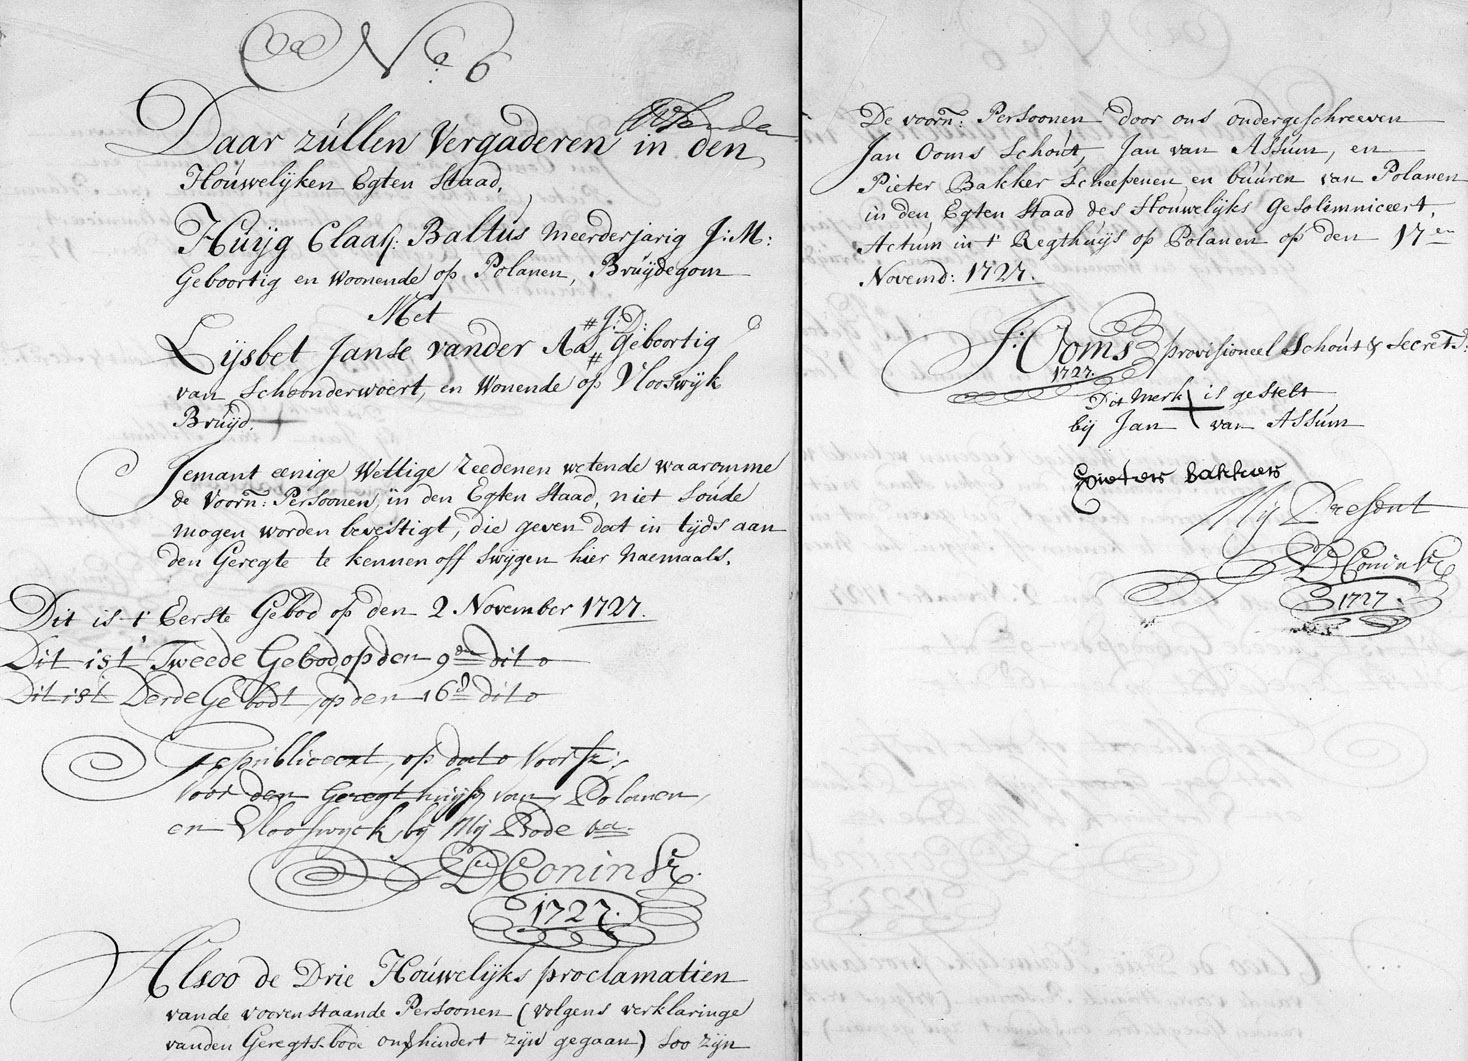 No 6
Daar zúllen Vergaderen in den
Houwelijken Egten Staad,
Húijg Claass: Baltús meerderjarig J:M:
Geboortig en Woonende op Polanen, Brúijdegom
Met
# J:D:
Lijsbet Janse vander Aa # Geboortig
van Schoonderwoert, en Wonende op Vlooswijk
Brúijd.
Jemant eenige Wettige Reedenen wetende waaromme
de Voorn: Persoonen, in den Egten Staad, niet Soúde
mogen worden bevestigt, die geven dat in tijds aan
den Geregte te kennen off swijgen hier naemaals.
Dit is t' Eerste Gebod op den 2 November 1727.
Dit is t' Tweede Gebod op den 9de dito
Dit ist Derde Gebodt op den 16d dito
Gepubliceert, op dato Voorsz:
voor den Geregthuijse van Polanen,
en Vlooswyck bij Mij Bode
D Conink
1727.
Alsoo de Drie Houwelijks proclamatien
vande voorenstaande Persoonen (volgens verklaringe
vanden Geregts-bode onghindert zijn gegaan) soo zijn
De voorn: Persoonen door ons ondergeschreeven
Jan Ooms Schoút, Jan van Assúm, en
Pieter Bakker Scheepenen en búúren van Polanen
in den Egten Staad des Houwelijks Gesolemniceert,
Actúm in t' Regthúijs op Polanen op den 17en
Novemb: 1727.
J: Ooms provisioneel Schout & Secrets:
1727.
Dit merk is gestelt
bij Jan van Assúm
Pieter Bakker
Mij Present
D Conink
1727.